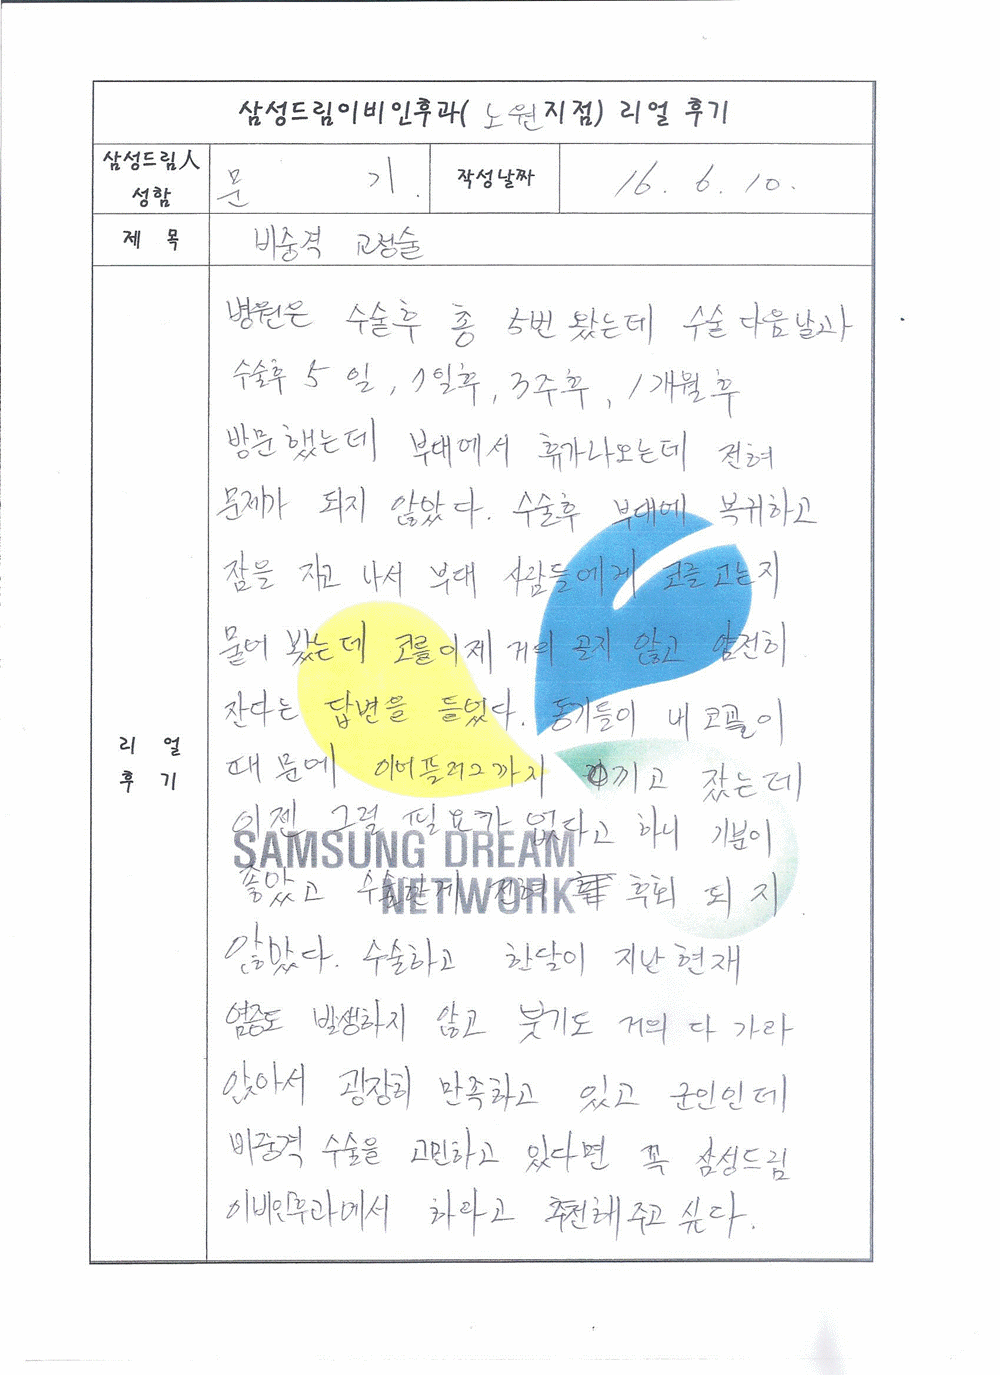 삼성드림이비인후과( 노원지점) 리얼 후기
삼성드림人 성함
문 기.
작성날짜
16. 6. 10.
제 목
비중격 교정술
리 얼 후 기
병원은 수술후 총 5번 왔는데 수술 다음날과
수술후 5 일, 1일후, 3주후, 1개월 후
방문했는데 부대에서 휴가나오는데 전혀
문제가 되지 않았다. 수술후 부대에 복귀하고
잠을 자고 나서 부대 사람들에게 코를 고는지
물어 봤는데 코를 이제 거의 골지 않고 얌전히
잔다는 답변을 들었다. 동기들이 내 코골이
때문에 이어플러그까지 끼고 잤는데
이젠 그럴 필요가 없다고 하니 기분이
좋았고 수술한게 전혀 후회 되 지
않았다. 수술하고 한달이 지난 현재
염증도 발생하지 않고 붓기도 거의 다 가라
앉아서 굉장히 만족하고 있고 군인인데
비중격 수술을 고민하고 있다면 꼭 삼성드림
이비인후과에서 하라고 추천해 주고 싶다.
SAMSUNG DREAM
NETWORK